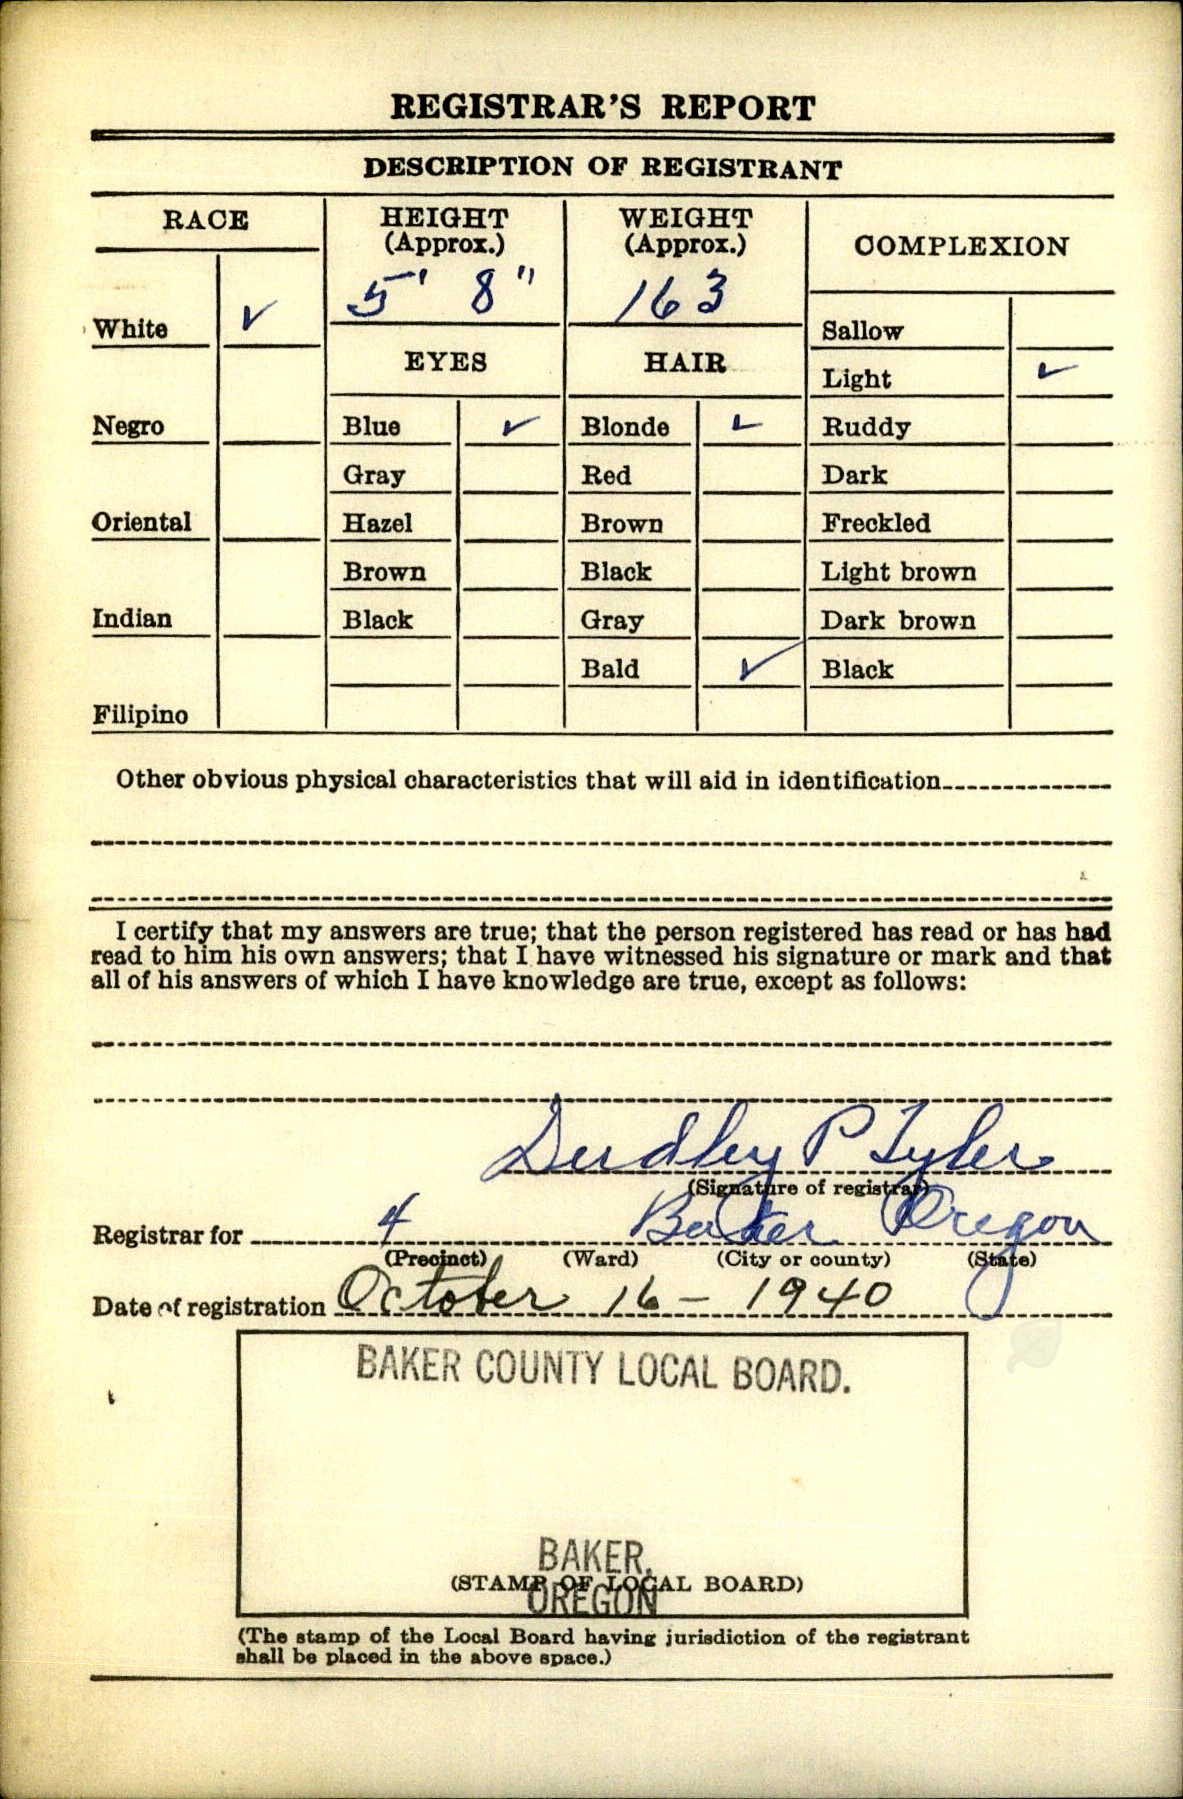 REGISTRAR'S REPORT
DESCRIPTION OF REGISTRANT
RACE
HEIGHT
(Approx.)
5' 8"
WEIGHT
(Approx.)
163
COMPLEXION
White ✓
Negro
Oriental
Indian
Filipino
EYES
Blue ✓
Gray
Hazel
Brown
Black
HAIR
Blonde ✓
Red
Brown
Black
Gray
Bald ✓
Sallow
Light ✓
Ruddy
Dark
Freckled
Light brown
Dark brown
Black
Other obvious physical characteristics that will aid in identification
I certify that my answers are true; that the person registered has read or has had
read to him his own answers; that I have witnessed his signature or mark and that
all of his answers of which I have knowledge are true, except as follows:
Dudley P Tyler
(Signature of registrar)
Registrar for 4 Baker Oregon
(Precinct) (Ward) (City or county) (State)
Date of registration October 16 - 1940
BAKER COUNTY LOCAL BOARD.
BAKER,
(STAMP OF LOCAL BOARD)
OREGON
(The stamp of the Local Board having jurisdiction of the registrant
shall be placed in the above space.)